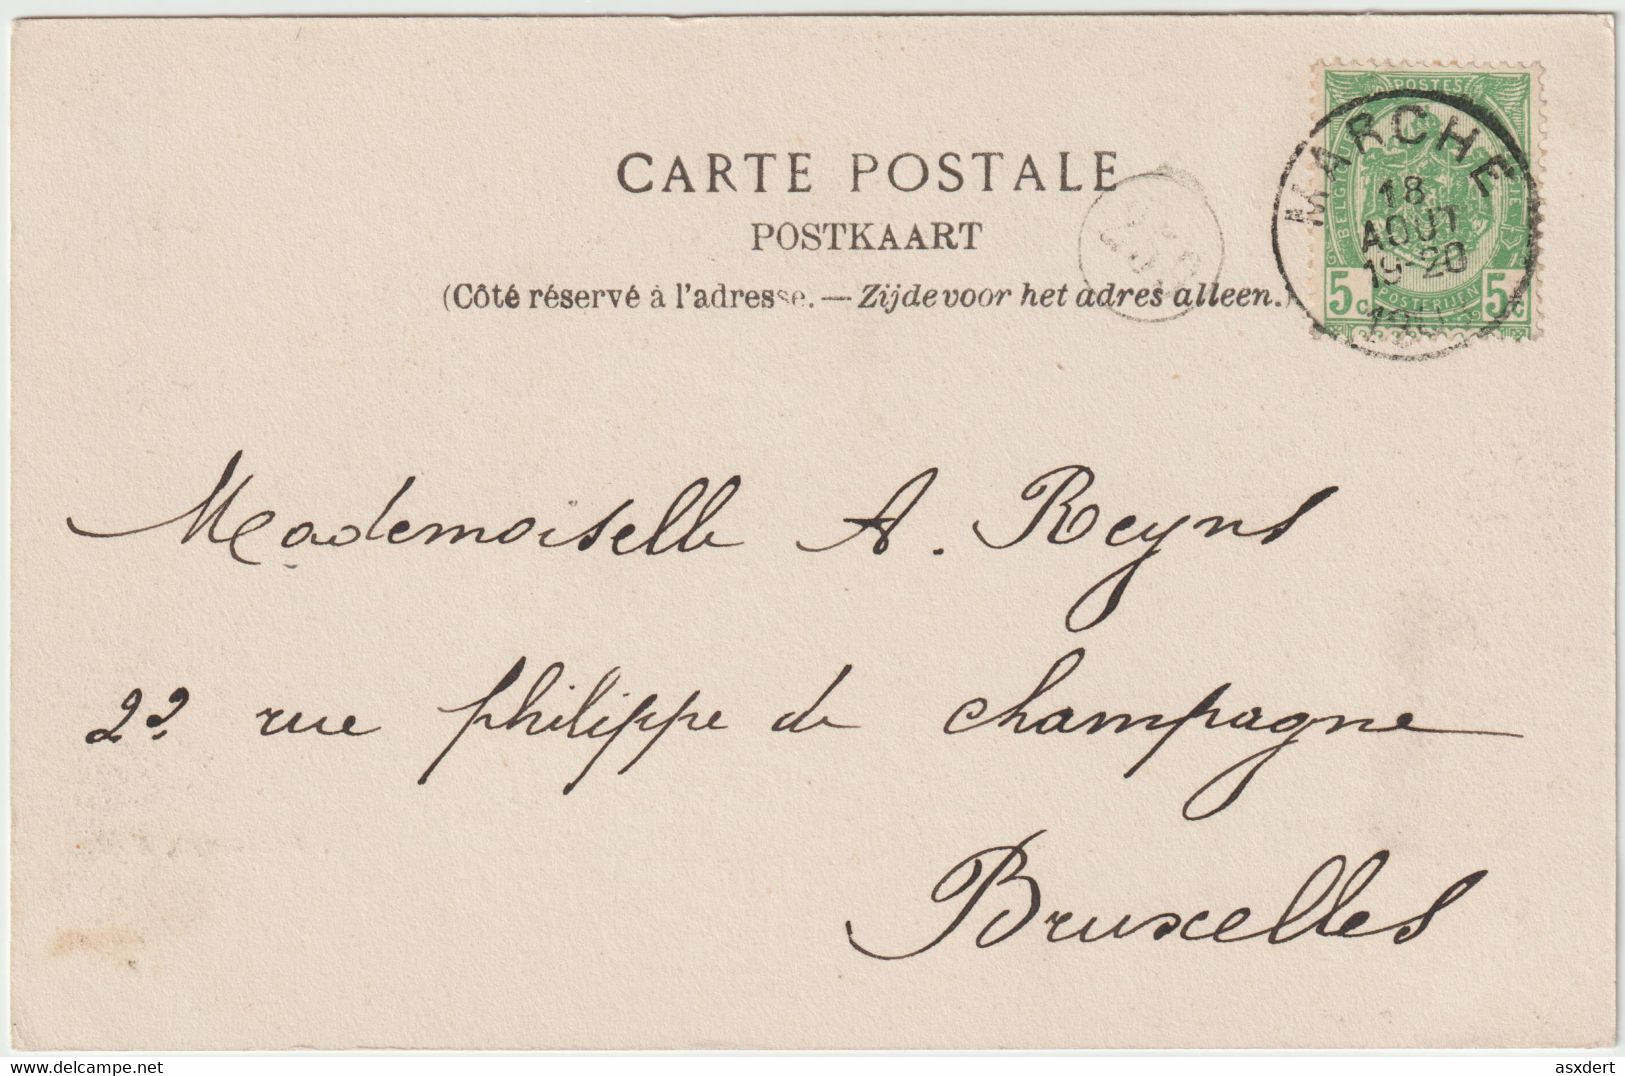 CARTE POSTALE
POSTKAART
(Côté réservé à l'adresse. — Zijde voor het adres alleen.)
POSTES
BELGIQUE
5c 5c
POSTERIJEN
MARCHE
18
AOUT
19-20
Mademoiselle A. Reyns
22 rue philippe de champagne
Bruxelles
delcampe.net
asxdert